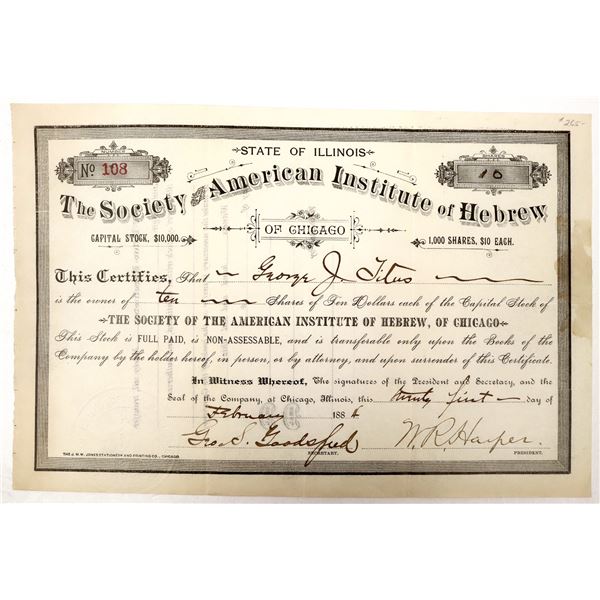 $265-
NUMBER
No 108
STATE OF ILLINOIS
SHARES
10
The Society of the American Institute of Hebrew
OF CHICAGO
CAPITAL STOCK, $10,000.
1,000 SHARES, $10 EACH.
This Certifies, That George J. Titus
is the owner of ten Shares of Ten Dollars each of the Capital Stock of
THE SOCIETY OF THE AMERICAN INSTITUTE OF HEBREW, OF CHICAGO
This Stock is FULL PAID, is NON-ASSESSABLE, and is transferable only upon the Books of the
Company by the holder hereof, in person, or by attorney, and upon surrender of this Certificate.
In Witness Whereof, The signatures of the President and Secretary, and the
Seal of the Company, at Chicago, Illinois, this twenty first day of
February 188
Geo. S. Goodspeed W. R. Harper.
SECRETARY. PRESIDENT.
THE J. M. W. JONES STATIONERY AND PRINTING CO., CHICAGO